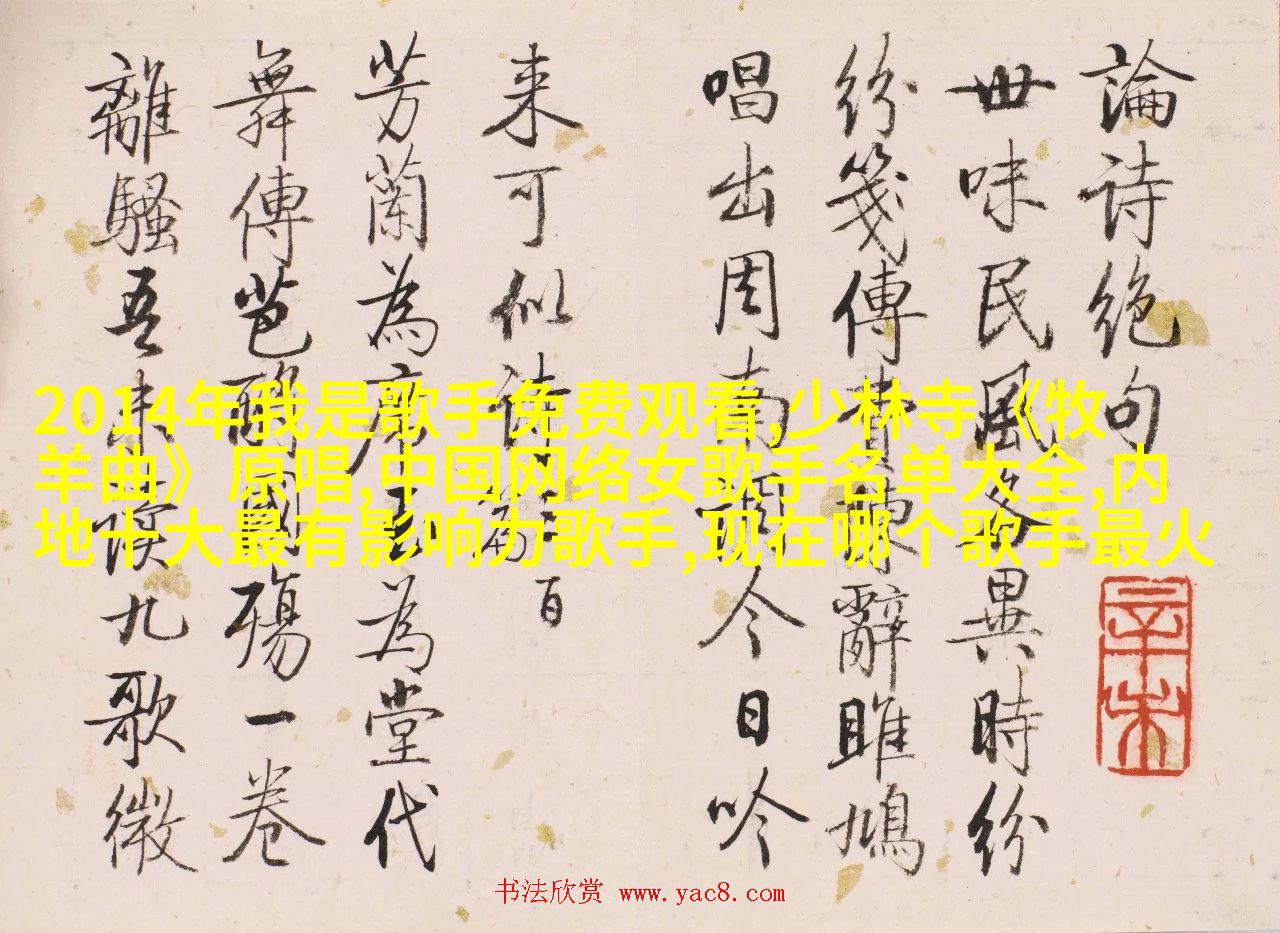 論詩絶句
世味民風各異時紛
紛箋傳費辭雎鳩
唱出周南今日吟
来可似詩篇 百
芳蘭為席玉為堂代
舞傳芭酹國殤一卷
離騷吾未讀九歌微
辛未
2014年我是歌手免费观看,少林寺《牧
羊曲》原唱,中国网络女歌手名单大全,内
地十大最有影响力歌手,现在哪个歌手最火
书法欣赏 www.yac8.com